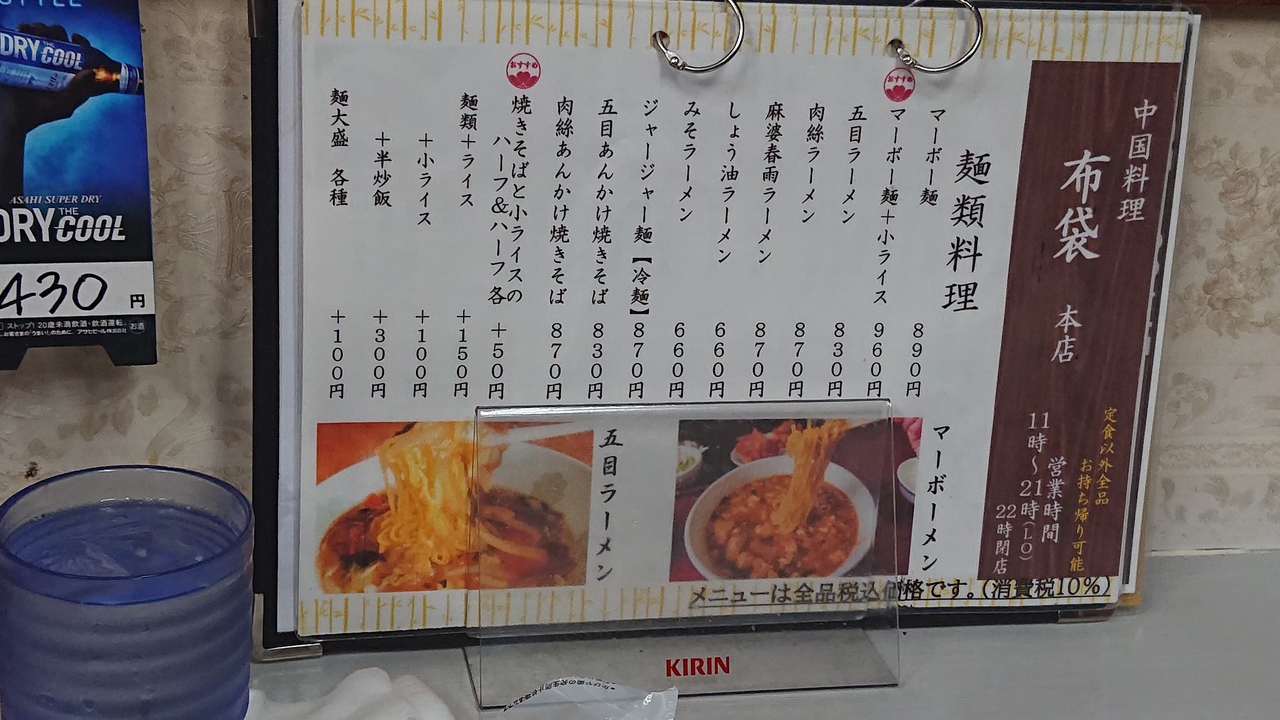 中国料理
布袋 本店
定食以外全品
お持ち帰り可能
営業時間
11時～21時(LO)
22時閉店
麺類料理
マーボー麺 890円
おすすめ
マーボー麺＋小ライス 960円
五目ラーメン 830円
肉絲ラーメン 870円
麻婆春雨ラーメン 870円
しょう油ラーメン 660円
みそラーメン 660円
ジャージャー麺【冷麺】 870円
五目あんかけ焼きそば 830円
肉絲あんかけ焼きそば 870円
おすすめ
焼きそばと小ライスの
ハーフ＆ハーフ 各 ＋50円
麺類＋ライス ＋150円
＋小ライス ＋100円
＋半炒飯 ＋300円
麺大盛 各種 ＋100円
マーボーメン
五目ラーメン
メニューは全品税込価格です。(消費税10%)
KIRIN
STYLE
DRY COOL
ASAHI SUPER DRY
THE
DRY COOL
430円
ストップ！20歳未満飲酒・飲酒運転。
お酒